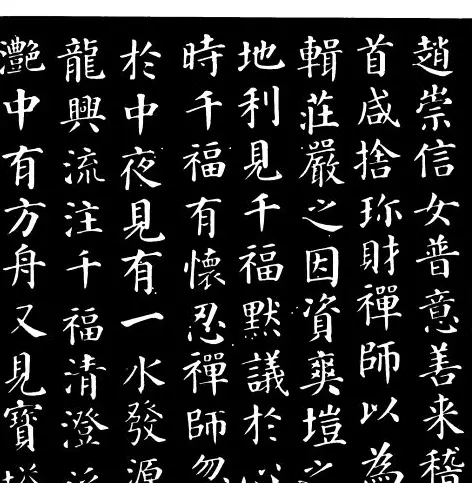 趙崇信女普意善来稽
首咸捨珎財禪師以為
輯莊嚴之因資爽塏之
地利見千福默議於心
時千福有懷忍禪師忽
於中夜見有一水發源
龍興流注千福清澄泛
灧中有方舟又見寶塔